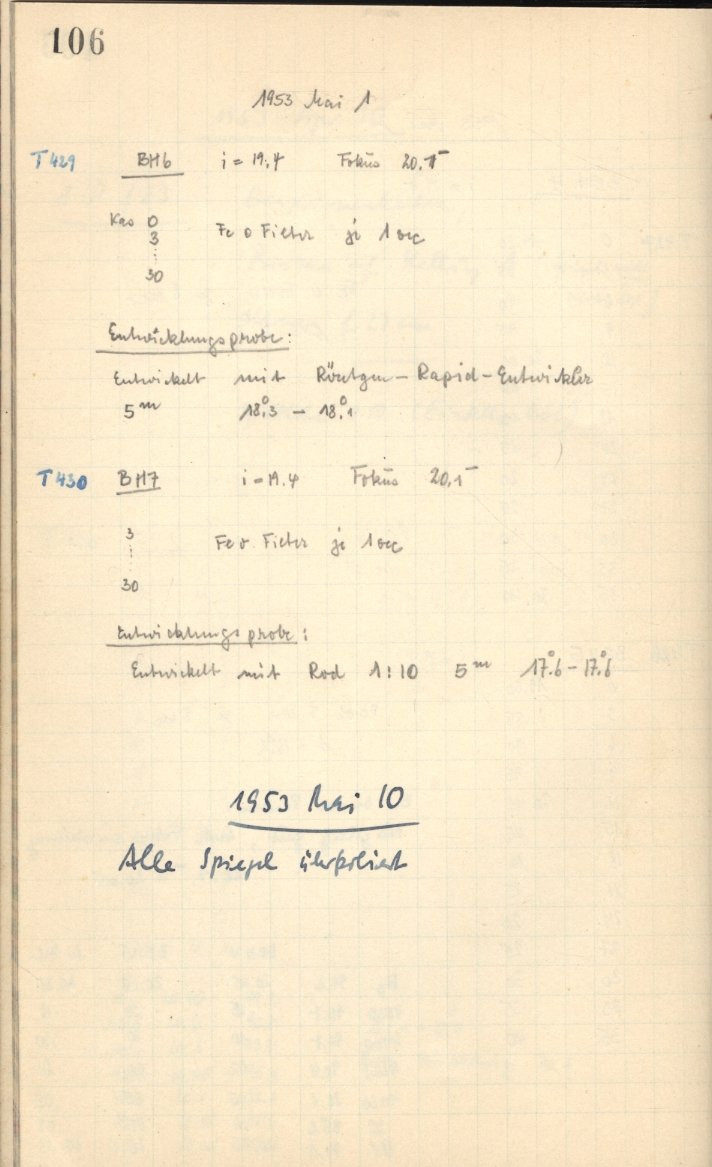 106
1953 Mai 1
T429 BH6 i = 19.4 Fokus 20.5
Kas 0 Fe o Filter je 1 sec
3
⋮
30
Entwicklungsprobe:
Entwickelt mit Röntgen-Rapid-Entwickler
5ᵐ 18°.3 – 18°.1
T430 BH7 i = 19.4 Fokus 20.5
3 Fe o. Filter je 1 sec
⋮
30
Entwicklungsprobe:
Entwickelt mit Rod 1:10 5ᵐ 17°.6 – 17°.6
1953 Mai 10
Alle Spiegel überpoliert